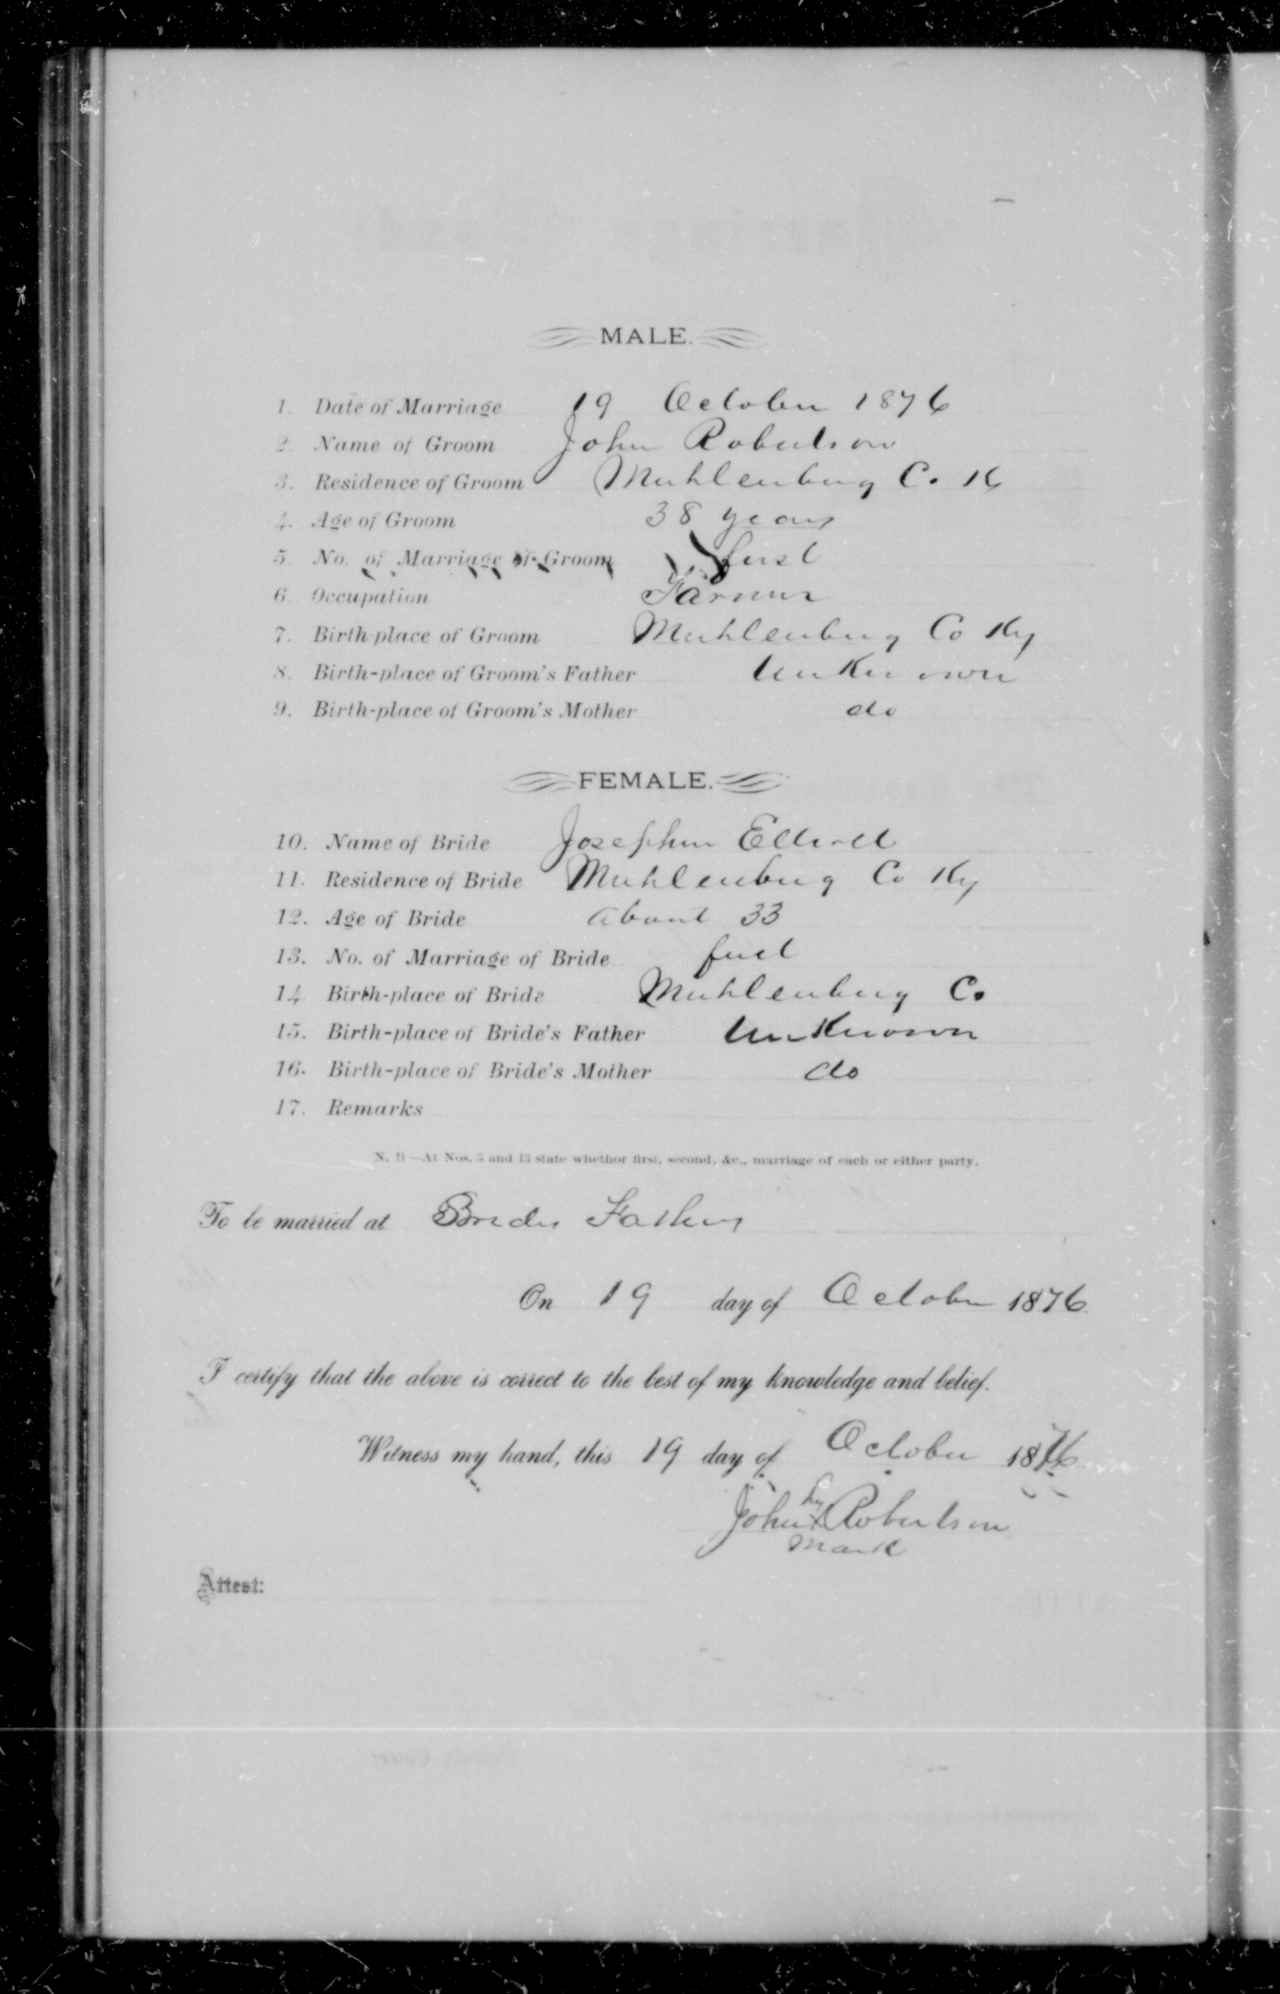 MALE.
1. Date of Marriage 19 October 1876
2. Name of Groom John Robertson
3. Residence of Groom Muhlenburg Co. K
4. Age of Groom 38 years
5. No. of Marriage of Groom first
6. Occupation Farmer
7. Birth-place of Groom Muhlenburg Co Ky
8. Birth-place of Groom's Father Unknown
9. Birth-place of Groom's Mother do
FEMALE.
10. Name of Bride Josephine
11. Residence of Bride Muhlenburg Co Ky
12. Age of Bride About 33
13. No. of Marriage of Bride first
14 Birth-place of Bride Muhlenburg Co.
15. Birth-place of Bride's Father Unknown
16. Birth-place of Bride's Mother do
17. Remarks
N. B—At Nos. 5 and 13 state whether first, second, &c., marriage of each or either party.
To be married at Brides Fathers
On 19 day of October 1876.
I certify that the above is correct to the best of my knowledge and belief.
Witness my hand, this 19 day of October 1876
his
John X Robertson
mark
Attest: